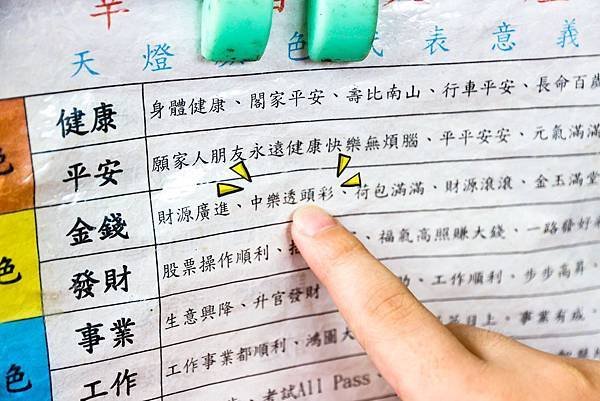 天燈顏色代表意義
健康 身體健康、閤家平安、壽比南山、行車平安、長命百歲
色 平安 願家人朋友永遠健康快樂無煩腦、平平安安、元氣滿滿
金錢 財源廣進、中樂透頭彩、荷包滿滿、財源滾滾、金玉滿堂
色 發財 股票操作順利、 、福氣高照賺大錢、一路發好
事業 生意興降、升官發財 助、工作順利、步步高昇、
色 工作 工作事業都順利、鴻圖大 上。事業有成、
考試All Pass